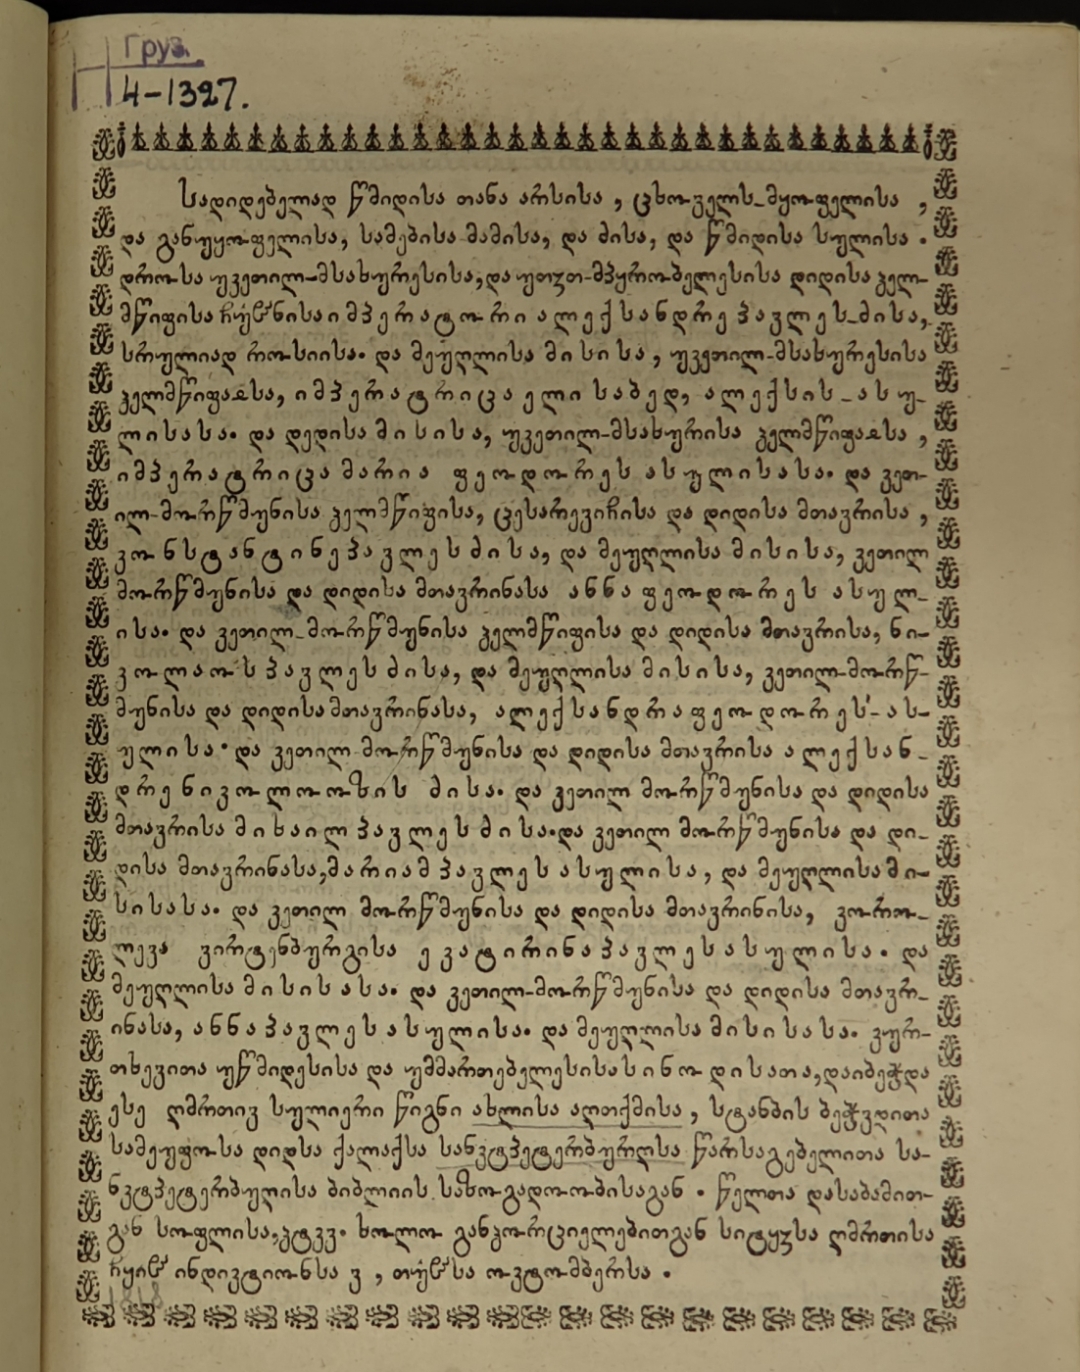 Груз.
4-1327.
სადიდებელად წმიდისა თანა არსისა , ცხოველს-მყოფელისა ,
და განუყოფელისა, სამებისა მამისა, და ძისა, და წმიდისა სულისა .
დროსა უკეთილ-მსახურესისა, და უთჳთ-მპყრობელესისა დიდისა ჴელ-
მწიფისა ჩუენისა იმპერატორი ალექსანდრე პავლეს-ძისა,
სრულიად როსიისა. და მეუღლისა მისისა, უკეთილ-მსახურესისა
ჴელმწიფაჲსა, იმპერატრიცა ელისაბედ, ალექსის-ასუ-
ლისასა. და დედისა მისისა, უკეთილ-მსახურისა ჴელმწიფაჲსა ,
იმპერატრიცა მარია ფეოდორეს ასულისასა. და კეთ-
ილ-მორწმუნისა ჴელმწიფისა, ცესარევიჩისა და დიდისა მთავრისა ,
კონსტანტინე პავლეს ძისა, და მეუღლისა მისისა, კეთილ
მორწმუნისა და დიდისა მთავრინასა ანნა ფეოდორეს ასულ-
ისა. და კეთილ-მორწმუნისა ჴელმწიფისა და დიდისა მთავრისა, ნი-
კოლაოს პავლეს ძისა, და მეუღლისა მისისა, კეთილ-მორწ-
მუნისა და დიდისა მთავრინასა, ალექსანდრა ფეოდორეს-ას-
ულისა. და კეთილ მორწმუნისა და დიდისა მთავრისა ალექსან-
დრე ნიკოლოოზის ძისა. და კეთილ მორწმუნისა და დიდისა
მთავრისა მიხაილ პავლეს ძისა. და კეთილ მორწმუნისა და დი-
დისა მთავრინასა, მარიამ პავლეს ასულისა, და მეუღლისა მი-
სისასა. და კეთილ მორწმუნისა და დიდისა მთავრინისა, კორო-
ლევა ვირტენბურგისა ეკატირინა პავლეს ასულისა. და
მეუღლისა მისისასა. და კეთილ-მორწმუნისა და დიდისა მთავრ-
ინასა, ანნა პავლეს ასულისა. და მეუღლისა მისისასა. კურ-
თხევითა უწმიდესისა და უმმართებელესისა სინოდისათა, დაიბეჭდა
ესე ღმრთივ სულიერი წიგნი ახლისა აღთქმისა , სტანბის ბეჭვდითა
სამეუფოსა დიდსა ქალაქსა სანკტპეტერბურღსა წარსაგებელითა სა-
ნკტპეტერბუღისა ბიბლიის საზოგადოობისაგან . წელთა დასაბამით-
გან სოფლისა, ხოლო განჴორციელებითგან სიტყჳსა ღმრთისა
ინდიკტიონსა ვ , თუესა ოკტომბერსა .
1818